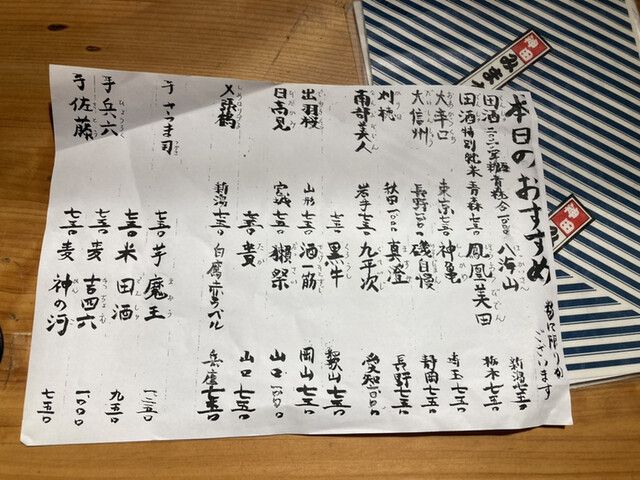 本日のおすすめ
数に限りが
ございます
田酒 青森 八海山 新潟 七五〇
田酒 特別純米 青森 七五〇 鳳凰美田 栃木 七五〇
大辛口 東京 七五〇 神亀 埼玉 七五〇
大信州 長野 磯自慢 静岡 七五〇
刈穂 秋田 真澄 長野 七五〇
南部美人 岩手 七五〇 九平次 愛知
黒牛 和歌山 七五〇
出羽桜 山形 七五〇 酒一筋 岡山 七五〇
日高見 宮城 七五〇 獺祭 山口 一〇〇〇
貴 山口 七五〇
〆張鶴 新潟 七五〇 白鷹赤ラベル 兵庫 七五〇
芋 さつま司 七五〇 芋 魔王
芋 兵六 七五〇 米 田酒 九五〇
芋 佐藤 七五〇 麦 吉四六 一〇〇〇
七五〇 麦 神の河 七五〇